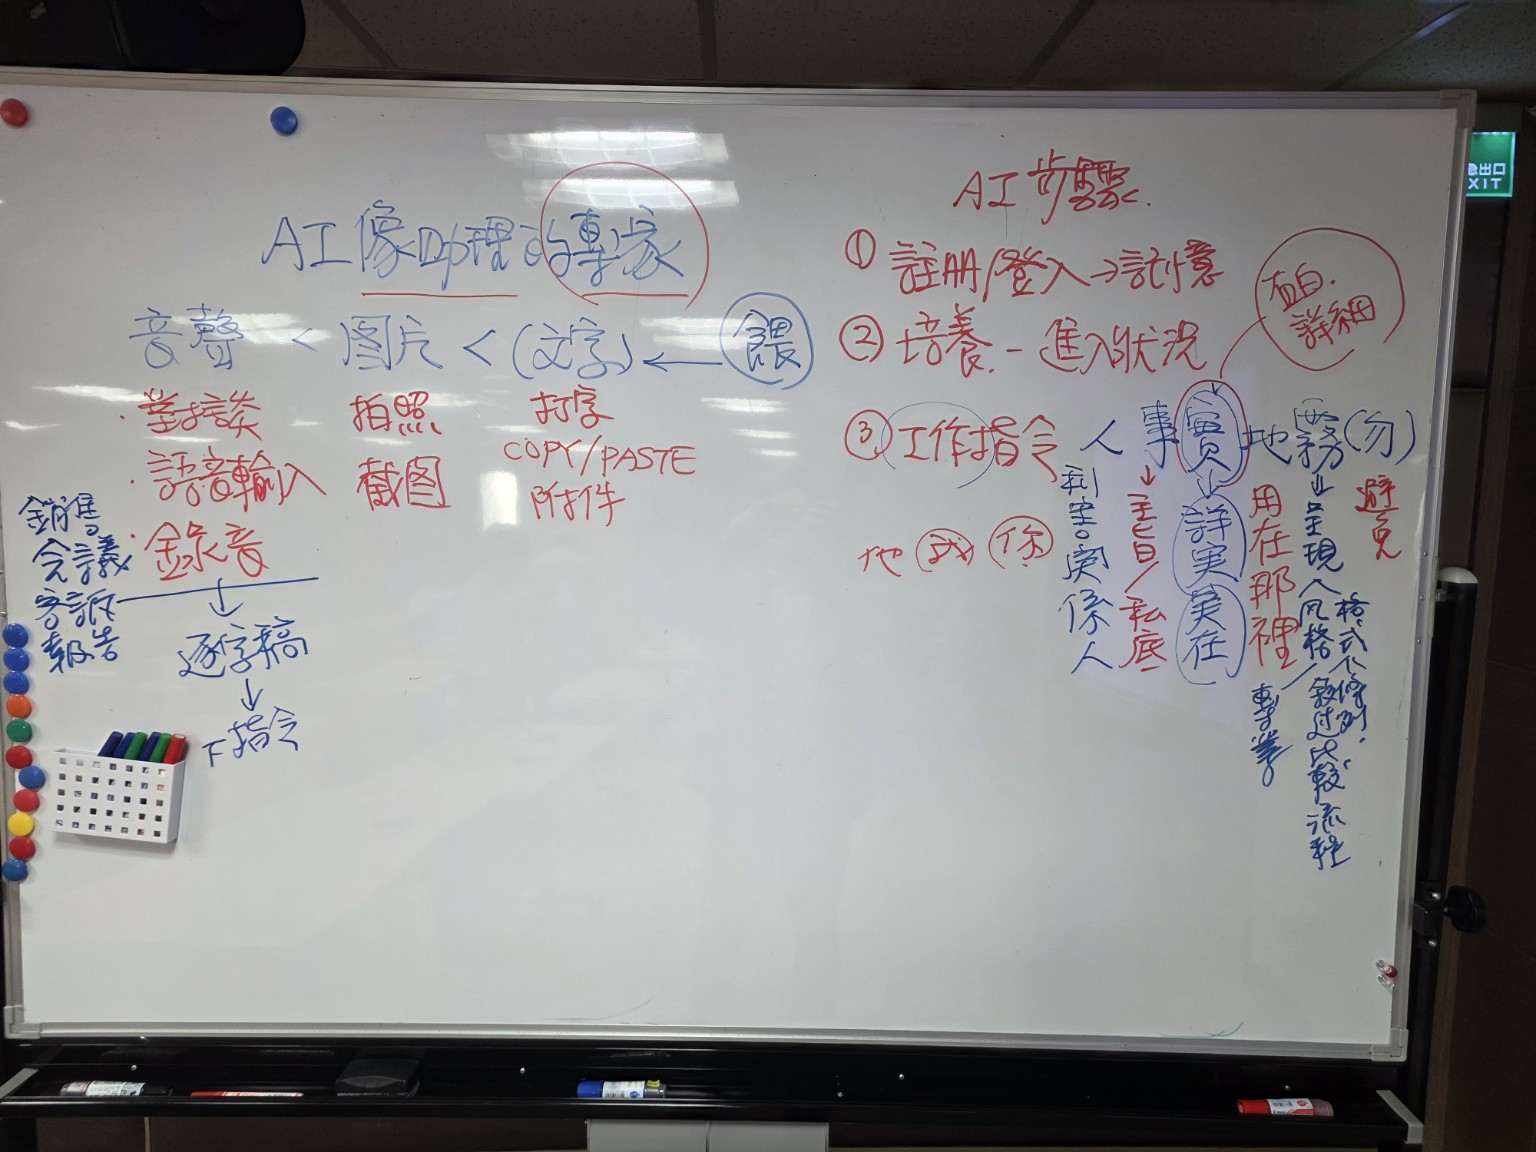 AI像助理的專家
音聲 < 图片 < (文字) ← 餵
·對談
·語音輸入
·錄音
拍照
截图
打字
COPY/PASTE
附件
銷售
会議
客訴
報告
↓
逐字稿
↓
下指令
AI步驟.
① 註册/登入→記憶
② 培養.－進入狀況
③ 工作指令
直白.
詳細
人 事 實 地 霧 (勿)
他 我 你
利害関係人
↓主旨/私底
↓詳実実在
用在那裡
專業
↓呈現人风格/敘过比較流程
格式不條列.
避免
出口
EXIT